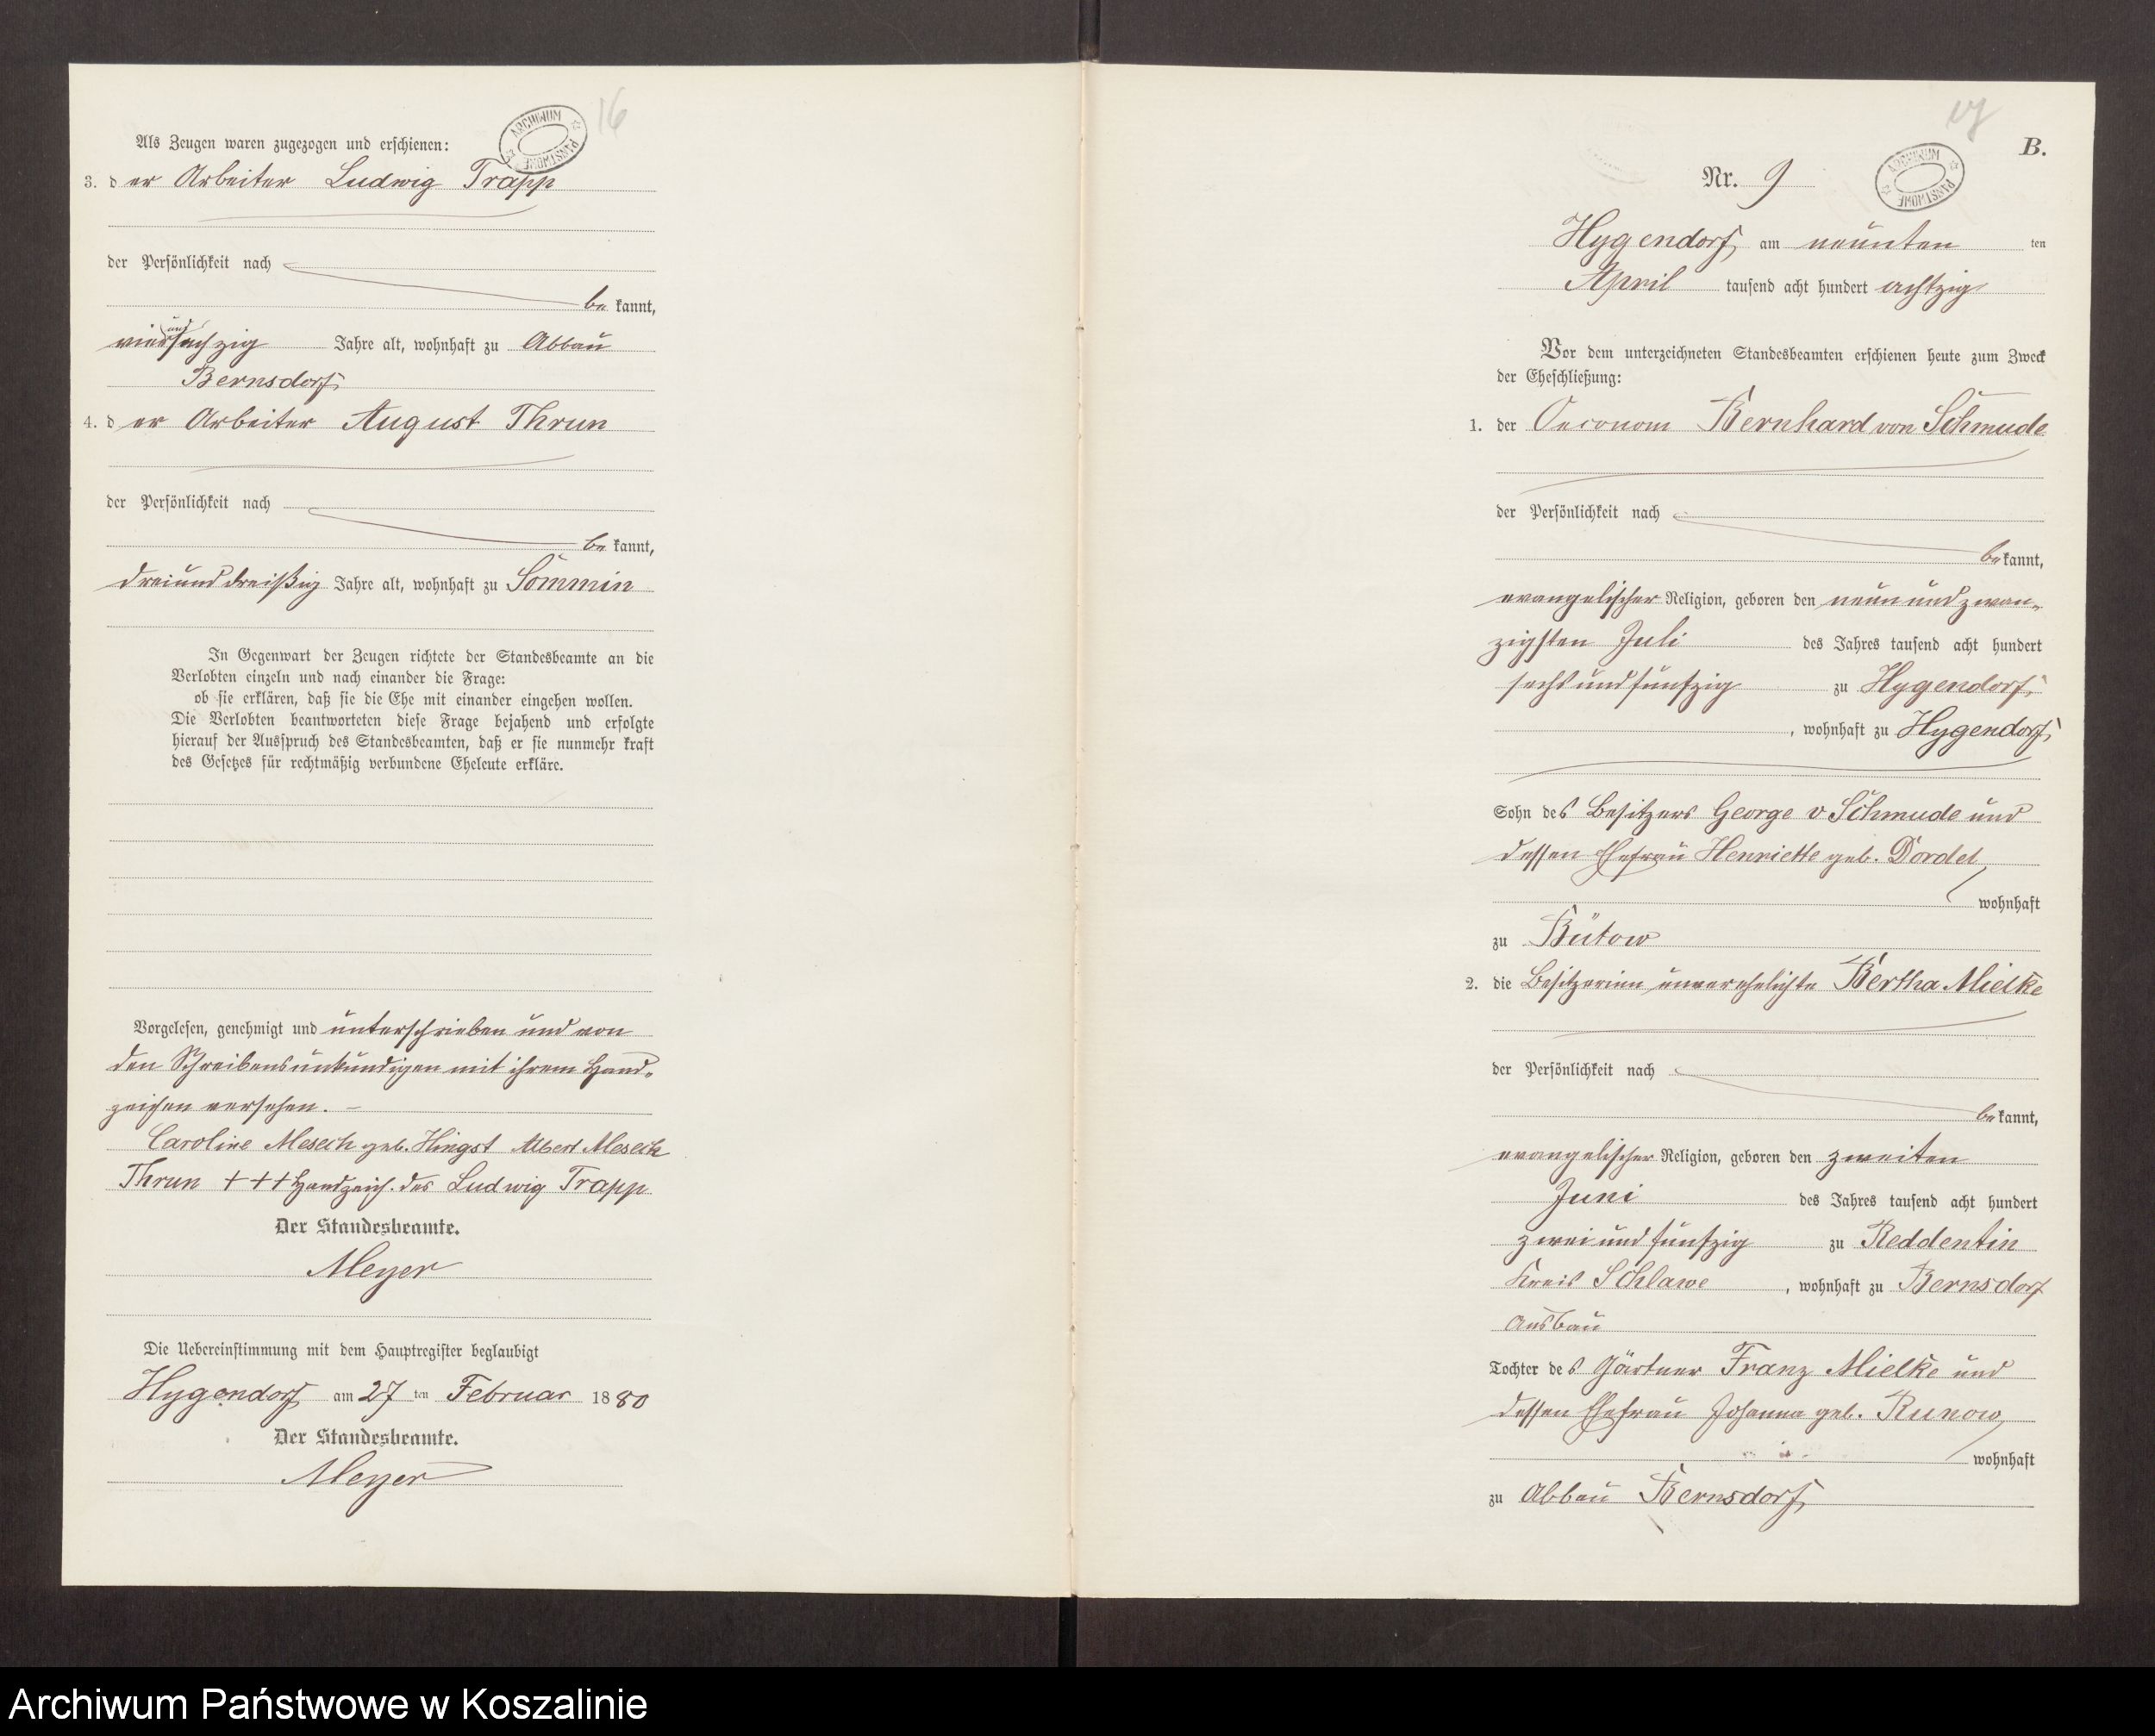 16
ARCHIWUM PAŃSTWOWE
Als Zeugen waren zugezogen und erschienen:
3. der Arbeiter Ludwig Trapp
der Persönlichkeit nach
bekannt,
vier und sechzig Jahre alt, wohnhaft zu Abbau
Bernsdorf
4. der Arbeiter August Thrun
der Persönlichkeit nach
bekannt,
dreiunddreißig Jahre alt, wohnhaft zu Sommin
In Gegenwart der Zeugen richtete der Standesbeamte an die
Verlobten einzeln und nach einander die Frage:
ob sie erklären, daß sie die Ehe mit einander eingehen wollen.
Die Verlobten beantworteten diese Frage bejahend und erfolgte
hierauf der Ausspruch des Standesbeamten, daß er sie nunmehr kraft
des Gesetzes für rechtmäßig verbundene Eheleute erkläre.
Vorgelesen, genehmigt und unterschrieben und von
den Schreibensunkundigen mit ihrem Hand-
zeichen versehen. –
Caroline Meseck geb. Hingst Albert Meseck
Thrun +++ Handzeich. des Ludwig Trapp
Der Standesbeamte.
Meyer
Die Uebereinstimmung mit dem Hauptregister beglaubigt
Hygendorf am 27 ten Februar 1880
Der Standesbeamte.
Meyer
17
B.
ARCHIWUM PAŃSTWOWE
Nr. 9
Hygendorf, am neunten ten
April tausend acht hundert achtzig
Vor dem unterzeichneten Standesbeamten erschienen heute zum Zweck
der Eheschließung:
1. der Oeconom Bernhard von Schmude
der Persönlichkeit nach
bekannt,
evangelischer Religion, geboren den neun und zwan-
zigsten Juli des Jahres tausend acht hundert
sechs und fünfzig zu Hygendorf,
, wohnhaft zu Hygendorf,
Sohn des Besitzers George v Schmude und
dessen Ehefrau Henriette geb. Dordel
wohnhaft
zu Bütow
2. die Besitzerinn unverehelichte Bertha Mielke
der Persönlichkeit nach
bekannt,
evangelischer Religion, geboren den zweiten
Juni des Jahres tausend acht hundert
zwei und fünfzig zu Reddentin
Kreis Schlawe, wohnhaft zu Bernsdorf
Ausbau
Tochter des Gärtner Franz Mielke und
dessen Ehefrau Johanna geb. Runow,
wohnhaft
zu Abbau Bernsdorf,
Archiwum Państwowe w Koszalinie